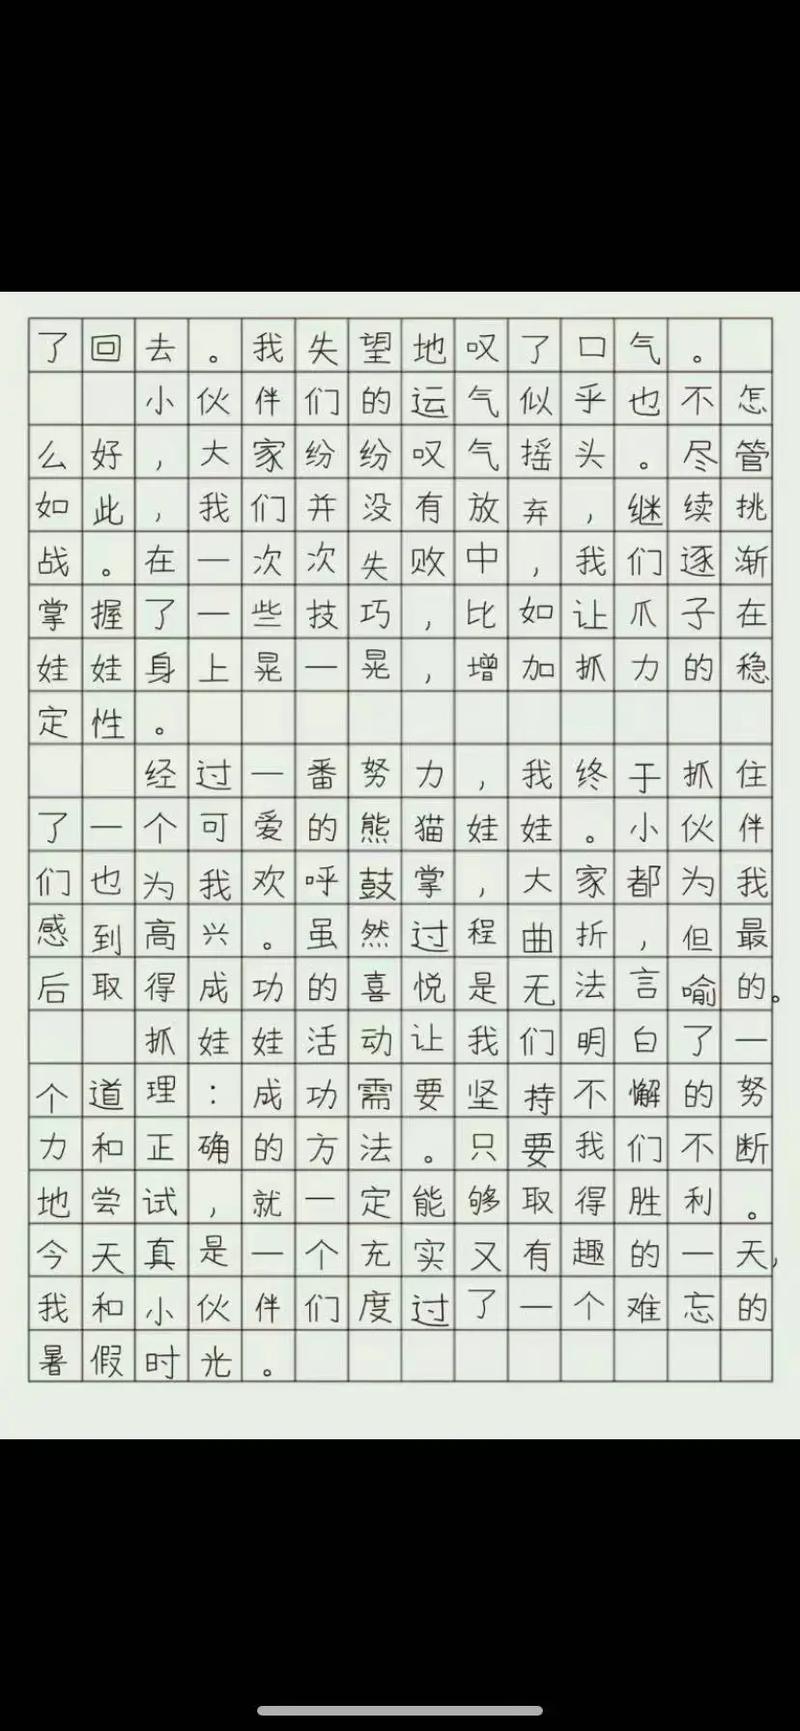 了回去。我失望地叹了口气。
小伙伴们的运气似乎也不怎
么好，大家纷纷叹气摇头。尽管
如此，我们并没有放弃，继续挑
战。在一次次失败中，我们逐渐
掌握了一些技巧，比如让爪子在
娃娃身上晃一晃，增加抓力的稳
定性。
经过一番努力，我终于抓住
了一个可爱的熊猫娃娃。小伙伴
们也为我欢呼鼓掌，大家都为我
感到高兴。虽然过程曲折，但最
后取得成功的喜悦是无法言喻的。
抓娃娃活动让我们明白了一
个道理：成功需要坚持不懈的努
力和正确的方法。只要我们不断
地尝试，就一定能够取得胜利。
今天真是一个充实又有趣的一天，
我和小伙伴们度过了一个难忘的
暑假时光。